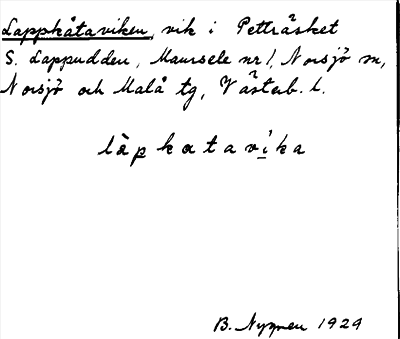 Lappkåtaviken, vik i Petträsket
S. Lappudden, Maursele nr 1, Norsjö sn,
Norsjö och Malå tg, Västerb. l.
làpkatavika
B. Nygren 1929